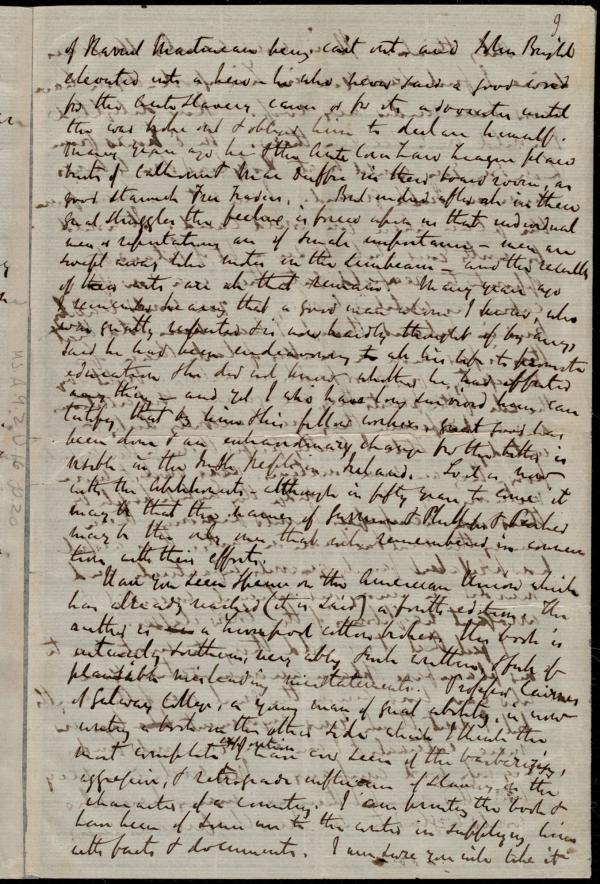 9
of Harriet Martineau being cast out and John Bright
elevated into a hero - he who never said a good word
for the Anti Slavery cause or for its advocates until
this war broke out & obliged him to declare himself.
Many years ago he & the Anti Corn Law League placed
busts of Calhoun & Mac Duffie in their board room, as
good staunch Free Traders. But indeed after all in these
great struggles the feeling is forced upon us that individual
men & reputations are of small importance - men are
swept away like motes in the sunbeam - and the results
of their acts are all that remains. Many years ago
I remember hearing that a good man whom I knew, who
was greatly respected & is now hardly thought of by any,
said he had been endeavouring all his life to promote
education & he did not know whether he had effected
any thing - and yet I who have long survived him can
testify that by him & his fellow workers great good has
been done & an extraordinary change for the better is
visible in the Irish people in Ireland. So it is now
with the Abolitionists - although in fifty years to come it
may be that the names of Garrison & Phillips & Parker
may be the only ones that will be remembered in connec
tion with their efforts.
Have you seen Spence on the American Union which
has already reached (it is said) a fourth edition. The
author is a Liverpool cotton broker. His book is
intensely Southern, very ably written & full of
plausible misleading misstatements. Professor Cairnes
of Galway College, a young man of great ability, is now
writing a book on the other side which I think the
most complete exposition I have ever seen of the barbarizing,
aggressive, & retrograde influence of slavery on the
character of a country. I am printing the book &
have been of some use to the writer in supplying him
with facts & documents. I am sure you will like it
MS A.9.2 v. p20